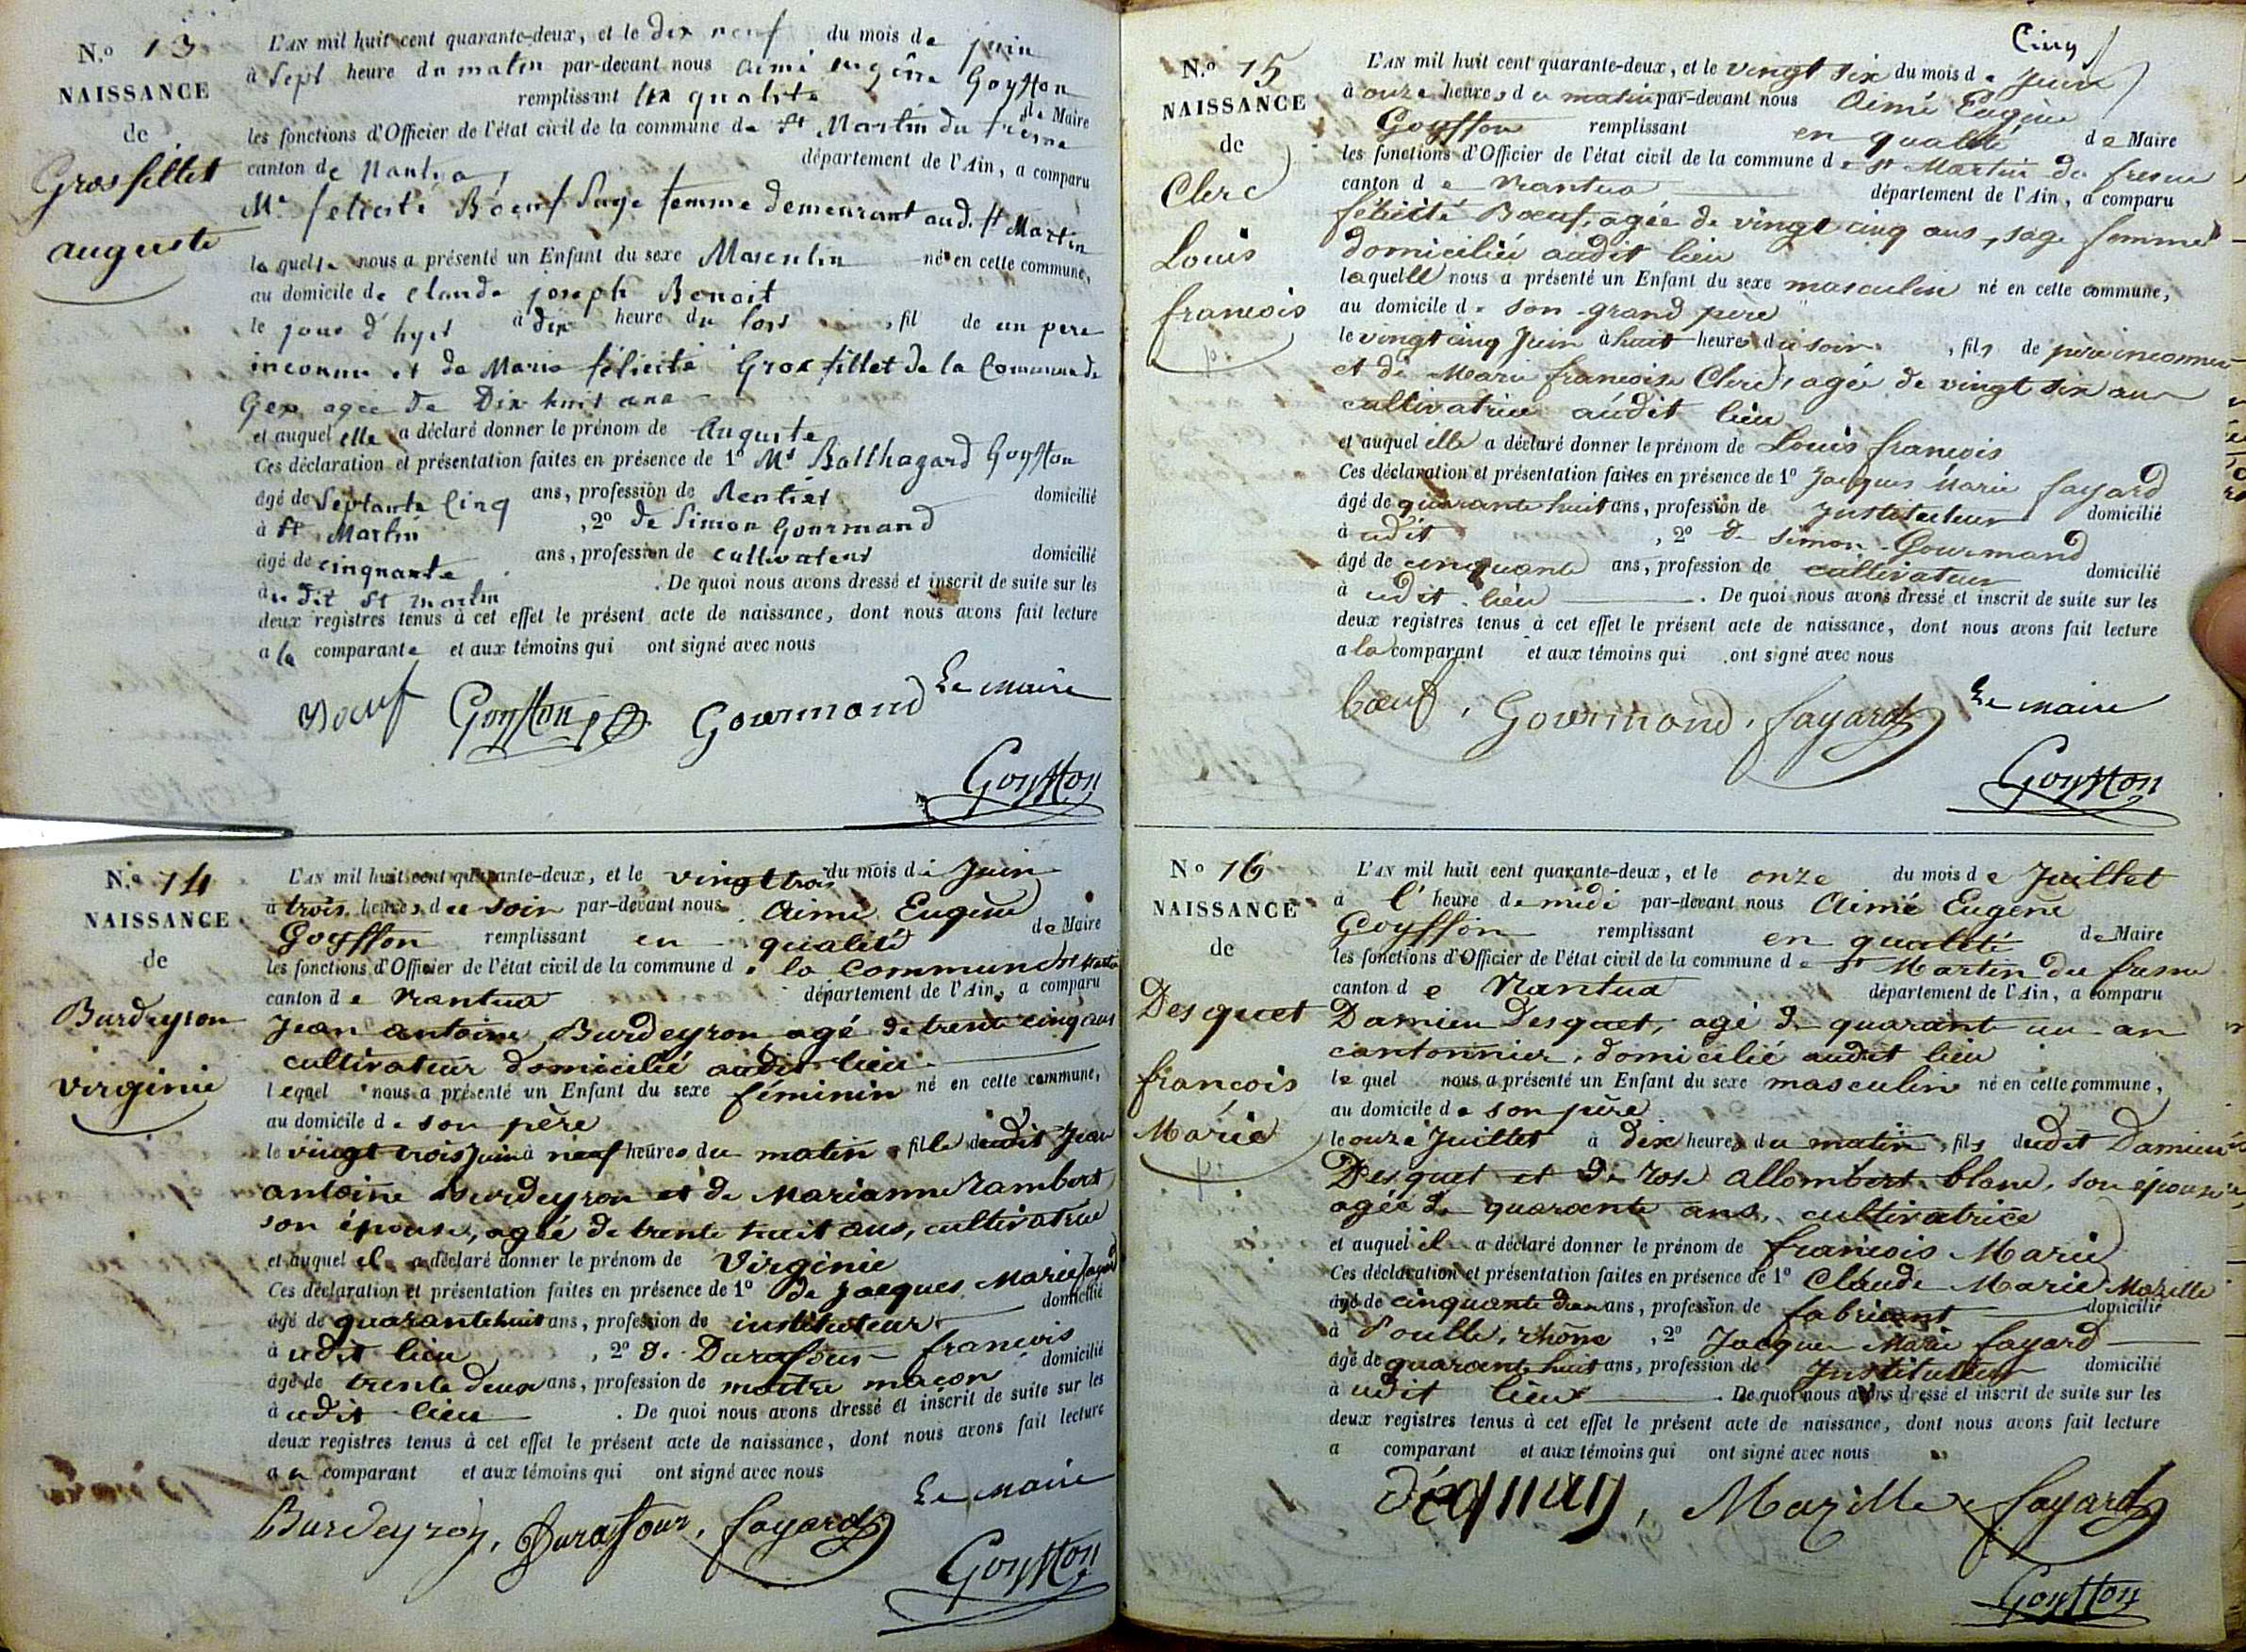 N.º 13
NAISSANCE
de
Grosfillet
auguste
L'AN mil huit cent quarante-deux, et le dix neuf du mois de juin
à Sept heure du matin par-devant nous aimé eugène Goyffon
remplissant en qualité de Maire
les fonctions d'Officier de l'état civil de la commune de St Martin du fresne
canton de Nantua, département de l'Ain, a comparu
Me félicité Boeuf Sage femme demeurant aud. St Martin
laquelle nous a présenté un Enfant du sexe Masculin né en cette commune,
au domicile de Claude joseph Benoit
le jour d'hyer à dix heure du soir, fil de un pere
inconnu et de Marie félicité Grosfillet de la Commune de
Gex agée de Dix huit ans
et auquel elle a déclaré donner le prénom de Auguste
Ces déclaration et présentation faites en présence de 1º Mr Balthazard Goyffon
âgé de Septante Cinq ans, profession de Rentier domicilié
à St Martin, 2º de Simon Gourmand
âgé de cinquante ans, profession de cultivateur domicilié
au dit St Martin. De quoi nous avons dressé et inscrit de suite sur les
deux registres tenus à cet effet le présent acte de naissance, dont nous avons fait lecture
a la comparante et aux témoins qui ont signé avec nous
Boeuf Goyffon Gourmand Le Maire
Goyffon
N.º 14
NAISSANCE
de
Burdeyron
virginie
L'AN mil huit cent quarante-deux, et le vingt trois du mois de Juin
à trois heures du soir par-devant nous Aimé Eugène
Goyffon remplissant en qualité de Maire
les fonctions d'Officier de l'état civil de la commune d la commune de St Martin
canton de Nantua département de l'Ain, a comparu
Jean antoine Burdeyron agé de trente cinq ans
cultivateur domicilié audit lieu
lequel nous a présenté un Enfant du sexe féminin né en cette commune,
au domicile de son père
le vingt trois Juin à neuf heures du matin, fille dudit Jean
antoine Burdeyron et de Marianne Rambert
son épouse, agée de trente huit ans, cultivatrice
et auquel il a déclaré donner le prénom de Virginie
Ces déclaration et présentation faites en présence de 1º de Jacques Marie fayard
âgé de quarante huit ans, profession de instituteur domicilié
à udit lieu, 2º d. Durafour francois
âgé de trente deux ans, profession de maitre maçon domicilié
à udit lieu. De quoi nous avons dressé et inscrit de suite sur les
deux registres tenus à cet effet le présent acte de naissance, dont nous avons fait lecture
a u comparant et aux témoins qui ont signé avec nous
Le Maire
Burdeyron, Durafour, fayard
Goyffon
Cinq
N.º 15
NAISSANCE
de
Clerc
Louis
francois
L'AN mil huit cent quarante-deux, et le vingt six du mois de Juin
à onze heures du matin par-devant nous Aimé Eugène
Goyffon remplissant en qualité de Maire
les fonctions d'Officier de l'état civil de la commune de St Martin du fresne
canton de Nantua département de l'Ain, a comparu
félicité Boeuf, agée de vingt cinq ans, sage femme
domiciliée audit lieu
laquelle nous a présenté un Enfant du sexe masculin né en cette commune,
au domicile de son grand père
le vingt cinq Juin à huit heures du soir, fils de père inconnu
et de Marie francoise Clerc, agée de vingt six ans
cultivatrice audit lieu
et auquel elle a déclaré donner le prénom de Louis francois
Ces déclaration et présentation faites en présence de 1º Jacques Marie fayard
âgé de quarante huit ans, profession de Instituteur domicilié
à udit, 2º de Simon Gourmand
âgé de cinquante ans, profession de cultivateur domicilié
à udit lieu. De quoi nous avons dressé et inscrit de suite sur les
deux registres tenus à cet effet le présent acte de naissance, dont nous avons fait lecture
a la comparant et aux témoins qui ont signé avec nous
boeuf, Gourmand, fayard Le Maire
Goyffon
Nº 16
NAISSANCE
de
Desquet
françois
Marie
L'AN mil huit cent quarante-deux, et le onze du mois de Juillet
à l' heure de midi par-devant nous Aimé Eugène
Goyffon remplissant en qualité de Maire
les fonctions d'Officier de l'état civil de la commune de St Martin du fresne
canton de Nantua département de l'Ain, a comparu
Damien Desquet, agé de quarante un an
cantonnier, domicilié audit lieu
lequel nous a présenté un Enfant du sexe masculin né en cette commune,
au domicile de son père
le onze Juillet à dix heures du matin, fils dudit Damien
Desquet et de rose allombert blanc, son épouse,
agée de quarante ans, cultivatrice
et auquel il a déclaré donner le prénom de francois Marie
Ces déclaration et présentation faites en présence de 1º Claude Marie Mazille
âgé de cinquante deux ans, profession de fabricant domicilié
à Poulle, rhône, 2º Jacques Marie fayard
âgé de quarante huit ans, profession de Instituteur domicilié
à udit lieu. De quoi nous avons dressé et inscrit de suite sur les
deux registres tenus à cet effet le présent acte de naissance, dont nous avons fait lecture
a comparant et aux témoins qui ont signé avec nous
Mazille, fayard
Goyffon